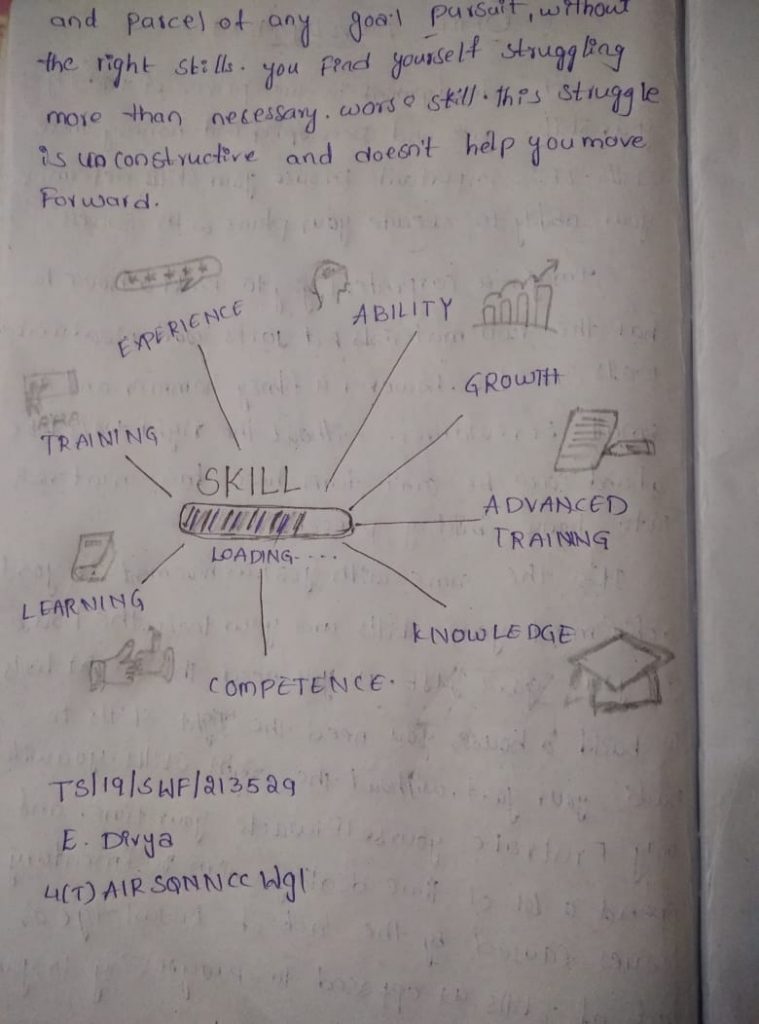 and parcel of any goal pursuit, without
the right skills. you find yourself struggling
more than necessary. worse skill. this struggle
is unconstructive and doesn't help you move
Forward.
EXPERIENCE
ABILITY
GROWTH
TRAINING
SKILL
ADVANCED
TRAINING
LOADING....
LEARNING
KNOWLEDGE
COMPETENCE.
TS/19/SWF/213529
E. Divya
4(T) AIR SQNNCC Wgl